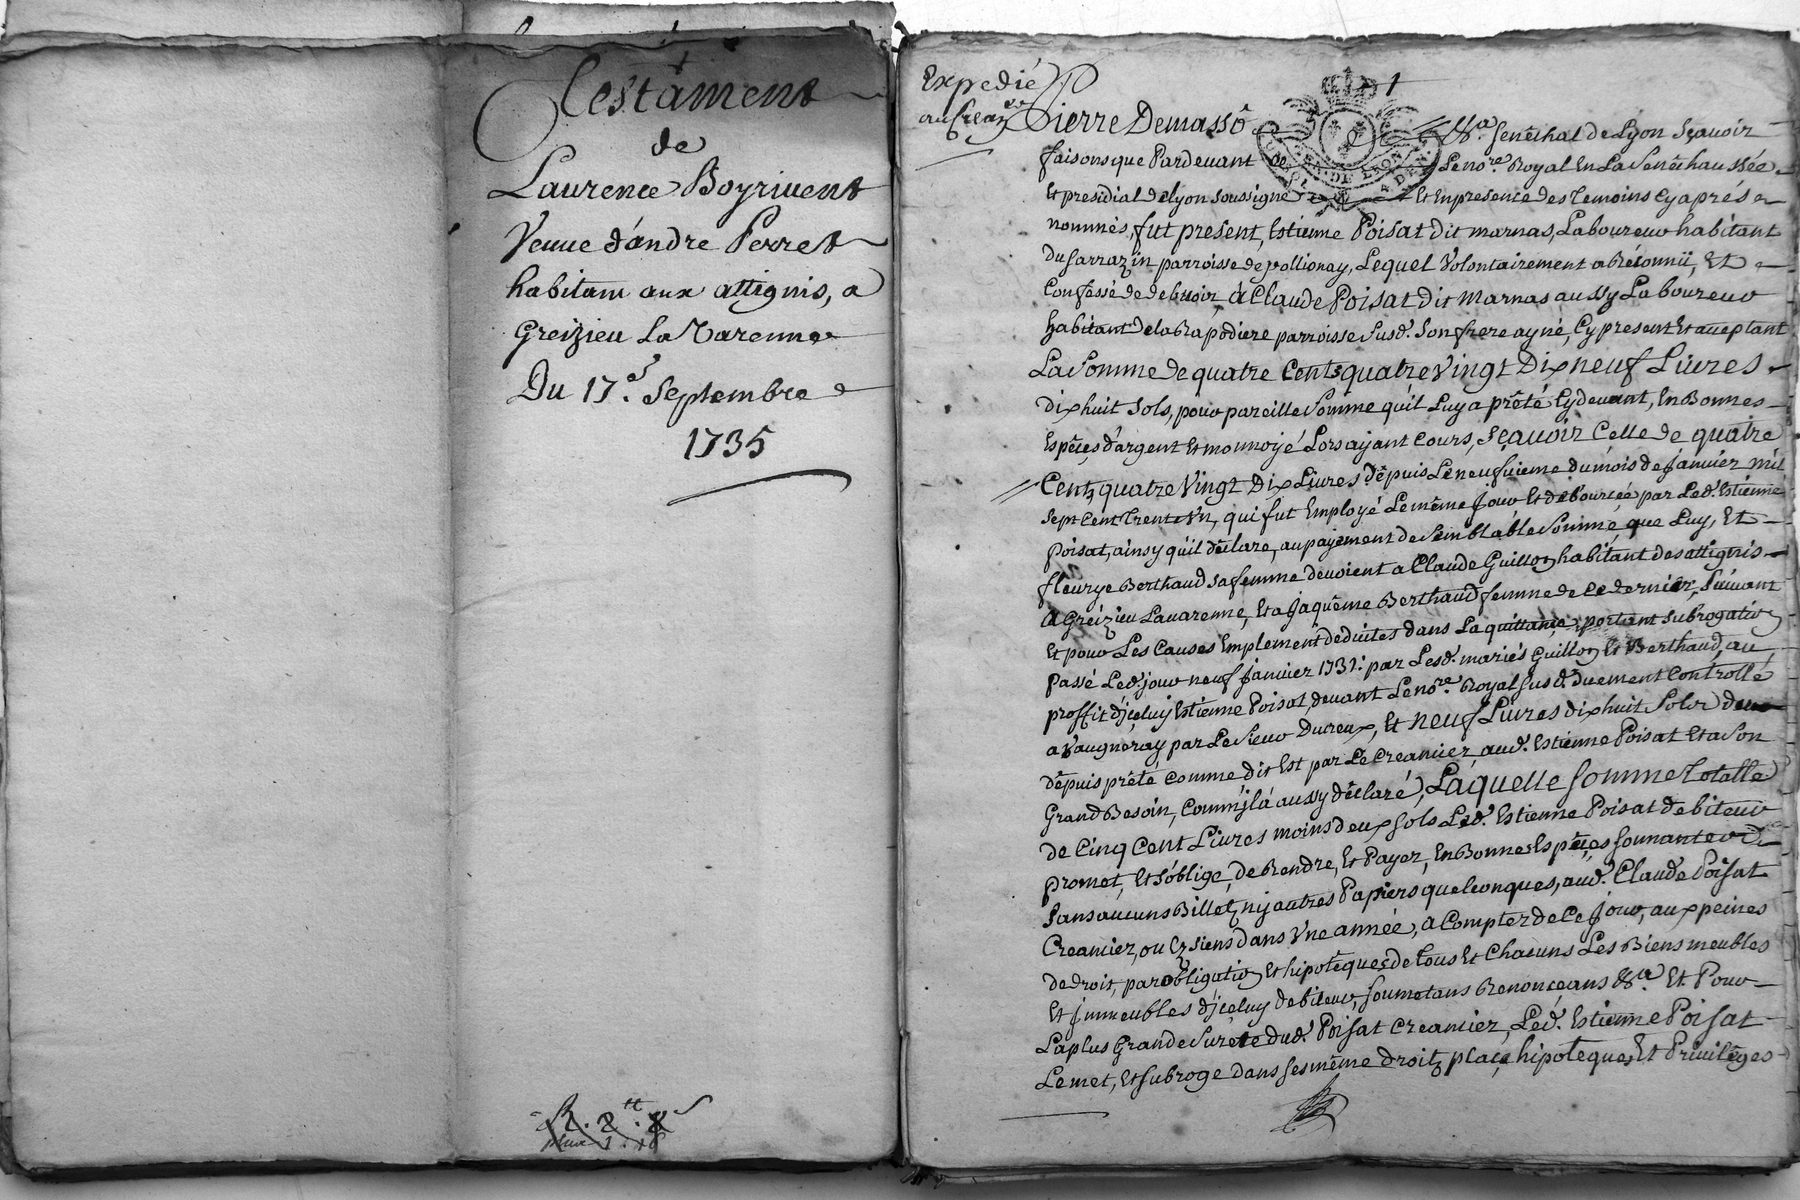 Testament
de
Laurence Boyrivent
Veuve d'andre Perret
habitant aux attignis, a
Greizieu La Varenne
Du 17.e Septembre
1735
Expedié
au crean.er
1
Pierre Demassô &.a senêchal de Lyon sçavoir
faisons que Pardevant Le no.re Royal En La senêchaussée
Et presidial de Lyon soussigné Et En presence des Temoins cy aprés
nommés, fut present, Estienne Poisat dit marnas, Laboureur habitant
du sarrazin parroisse de pollionay, Lequel Volontairement a Réconnü, Et
Confessé de debvoir à Claude Poisat dit Marnas aussy Laboureur
habitant de la Rapodiere parroisse susd. son frere ayné, Cy present Et acceptant
La somme de quatre Cents quatre vingt Dix neuf Livres
dix huit sols, pour pareille somme qu'il Luy a prêté Cy devant, En Bonnes
Espêces d'argent Et monnoyé Lors ayant cours, sçavoir Celle de quatre
Cents quatre Vingt Dix Livres dêpuis Le neufvieme du mois de janvier mil
sept Cent Trente Vn, qui fut Employé Le même jour Et débourcée par Led. Estienne
poisat, ainsy qu'il déclare, au payement de semblable somme que Luy, Et
fleurye Berthaud sa femme devoient a Claude Guillon habitant des attignis
a Greizieu Lavarenne, Et a jaquême Berthaud femme de ce dernier, suivant
Et pour Les Causes Emplement deduites dans La quittance portant subrogation
passé Led. jour neuf janvier 1731. par Lesd. mariés Guillon Et Berthaud, au
proffit d'jceluy Estienne Poisat, devant Le no.re Royal susd. duement Controllé
a Vaugneray par Le sieur Ducreux, Et neuf Livres dix huit sols
dêpuis prêté comme dit Est par Le Creancier aud. Estienne Poisat Et a son
Grand Besoin, comm'jl a aussy déclaré, Laquelle somme Totalle
de Cinq Cent Livres moins deux sols Led. Estienne Poisat debiteur
promet, Et s'oblige, de Rendre, Et Payer, En Bonnes Espêces sonnante
sans aucuns Billetz ny autres Papiers quelconques, aud. Claude Poisat
Creancier, ou Es siens dans Vne année, a compter de Ce jour, aux peines
de droit, par obligation Et hipotêques de Tous Et Chacuns Les Biens meubles
Et jmmeubles d'jceluy debiteur, soumetans Renonceans &.a Et Pour
La plus Grande surête dud. Poisat Creancier, Led. Estienne Poisat
Le met, Et subroge dans ses même droitz place hipotêques, Et Privilêges